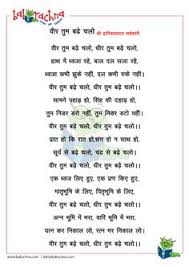 balrachna
वीर तुम बढ़े चलो
वीर तुम बढ़े चलो, धीर तुम बढ़े चलो,
हाथ में ध्वजा रहे, बाल दल सजा रहे,
ध्वज कभी झुके नहीं, दल कभी रुके नहीं।
वीर तुम बढ़े चलो, धीर तुम बढ़े चलो।।
सामने पहाड़ हो, सिंह की दहाड़ हो,
तुम निडर डरो नहीं, तुम निडर डटो वहीं।
वीर तुम बढ़े चलो, धीर तुम बढ़े चलो।।
प्रात हो कि रात हो, संग हो न साथ हो
सूर्य से बढ़े चलो, चंद्र से बढ़े चलो।
वीर तुम बढ़े चलो, धीर तुम बढ़े चलो।।
एक ध्वज लिए हुए, एक प्रण किए हुए।
मातृभूमि के लिए, पितृभूमि के लिए,
वीर तुम बढ़े चलो, धीर तुम बढ़े चलो।।
अन्न भूमि में भरा, वारि भूमि में भरा।
यत्न कर निकाल लो, रत्न भर निकाल लो।
वीर तुम बढ़े चलो, धीर तुम बढ़े चलो।।